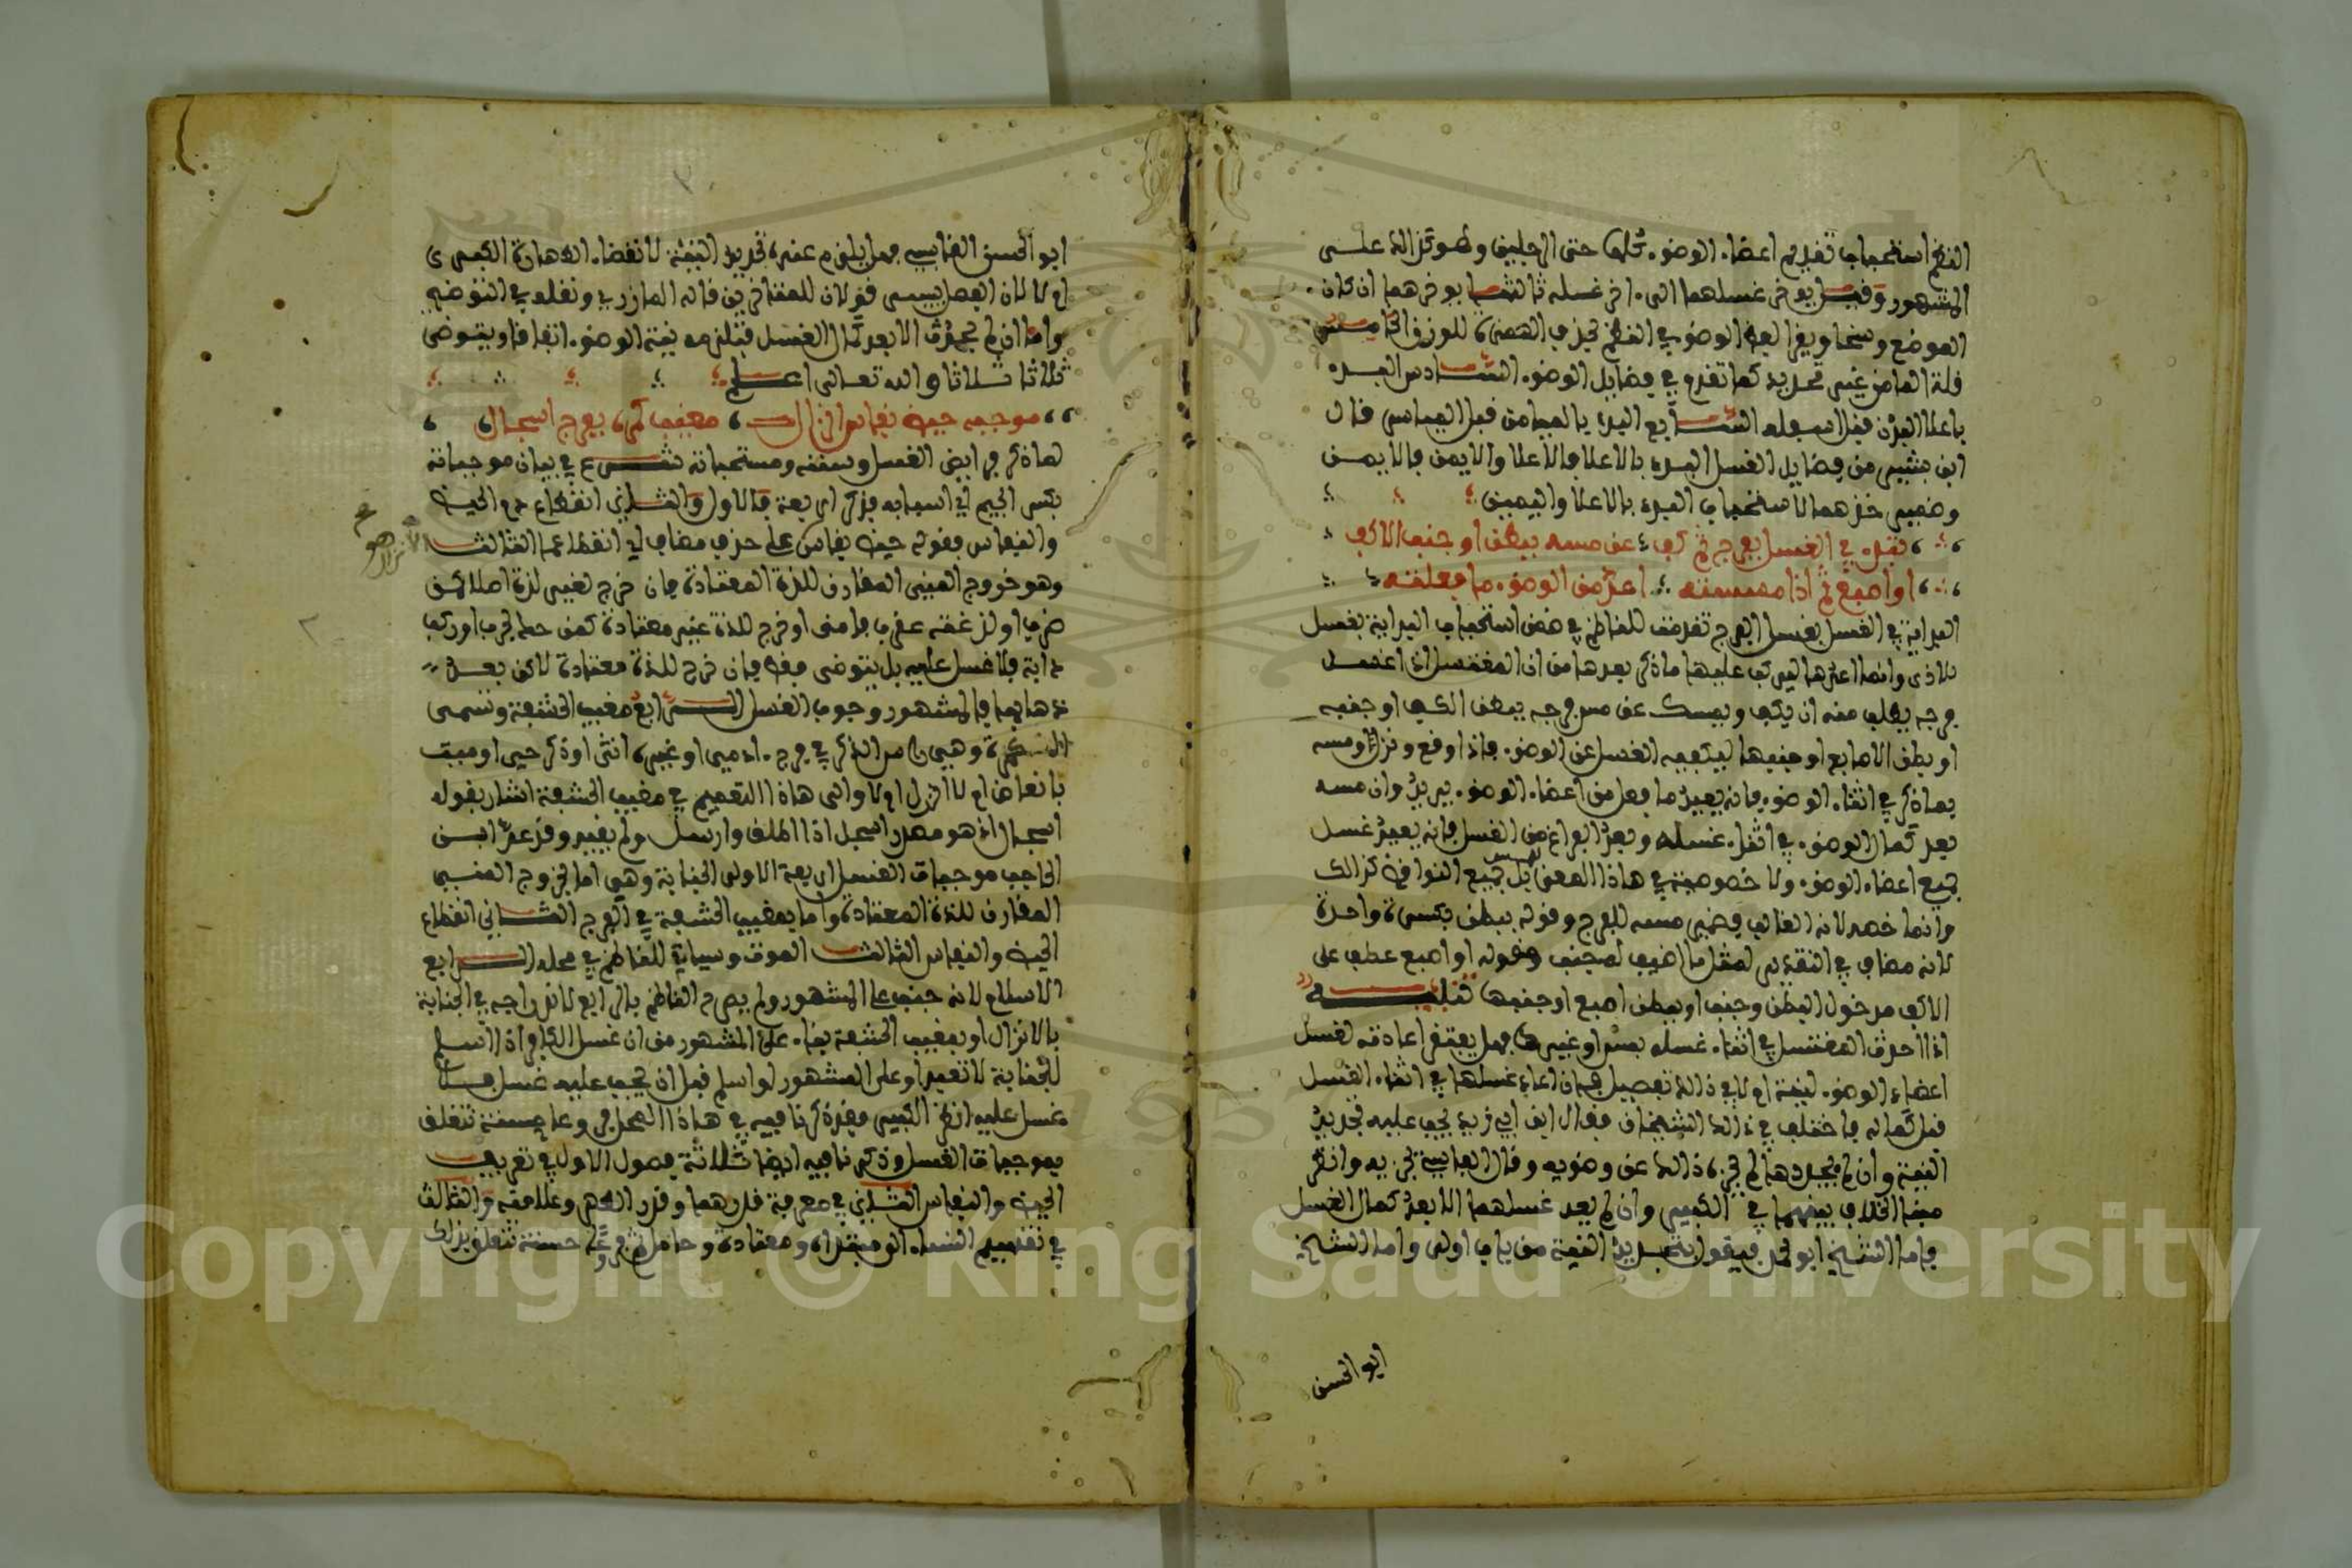 النظم استحباب تقديم اعضاء الوضوء كلها حتى الرجلين وهو كذالك علـــى
المشهور وقيـــل يوخر غسلهما الى اخر غسله ثالثهـــا يوخرهما ان كان
الموضع وسخا ويقرا لفظ الوضو في النظم بحذف الهمزة للوزن الخامـــس
قلة الماء من غير تحديد كما تقدم في فضايل الوضوء الســـادس البدء
باعلا البدن قبل اسفله الســـابع البدء بالميامن قبل المياسر قال
ابن بشير من فضايل الغسل البدء بالاعلا فالاعلا والايمن فالايمـــن
وضمير خذهما لاستحباب البدء بالاعلا واليمين
تبدء في الغسل بفرج ثم كف عن مسه ببطن او جنب الاكف
او اصبع ثم اذا مسسته اعد من الوضوء ما فعلته
البداية في الغسل بغسل الفرج تقدمت للناظم في ضمن استحباب البداية بغسل
الاذى وانما اعادها ليركب عليها ما ذكر بعدها من ان المغتسل اذا غســـل
فرجه يطلب منه ان يكف ويمسك عن مس فرجه ببطن الكف او جنبه
او بطن الاصابع او جنبها ليكفيه الغسل عن الوضوء فاذا وقع ونزل ومسه
بما ذكر في اثناء الوضوء فانه يعيد ما فعل من اعضاء الوضوء يريد وان مسه
بعد كمال الوضوء في اثناء غسله وبعد الفراغ من الغسل فانه يعيد غسل
جميع اعضاء الوضوء ولا خصوصية في هاذا المعنى للمس بل جميع النواقض كذالك
وانما خصه لانه الغالب فضمير مسه للفرج وقوله ببطن بكسرة واحدة
لانه مضاف في التقدير لمثل ما اضيف له جنب وقوله او اصبع عطف على
الاكف مدخول البطن وجنب او ببطن اصبع او جنبها تنبيـــه
اذا احدث المغتسل في اثناء غسله بمس او غيره فهل يفتقر اعادته لغسل
اعضاء الوضوء لنية ام لا في ذالك تفصيل فان اعاد غسلها في اثناء الغسل
قبل كماله فاختلف في ذالك الشيخان فقال ابن ابي زيد يجب عليه تجديد
النية وان لم يجددها لم يجزه ذالك عن وضويه وقال القابسي تجزيه وانظر
مبنا الخلاف بينهما في الكبير وان لم يعد غسلهما الا بعد كمال الغسل
فاما الشيخ ابو محمد فيقول بتجديد النية من باب اولى واما الشيخ
ابو الحسن
ابو الحسن القابسي فهل يلزم عنده تجديد النية لانقضاء الطهارة الكبرى
ام لا لان الفصل يسير قولان للمتاخرين قاله المازري ونقله في التوضيح
واما ان لم يحدث الا بعد كمال الغسل فتلزمه نية الوضوء اتفاقا ويتوضى
ثلاثا ثلاثا والله تعالى اعـــلم
موجبه حيض نفاس انزال مغيب كمرة بفرج اسجال
لما ذكر فرايض الغسل وسننه ومستحباته شـــرع في بيان موجباته
بكسر الجيم اي اسبابه فذكر اربعة فالاول والثـــاني انقطاع دم الحيض
والنفاس فقوله حيض نفاس على حذف مضاف اي انقطاعهما الثالث الانزال
وهو خروج المني المقارن للذة المعتادة فان خرج لغير لذة اصلا كمن
ضرب او لدغته عقرب فامنى او خرج للذة غير معتادة كمن حك لجرب او ركب
دابة فلا غسل عليه بل يتوضى فقط فان خرج للذة معتادة لاكن بعـــد
ذهابها فالمشهور وجوب الغسل الـــرابع مغيب الحشفة وتسمى
الكمرة وهي راس الذكر في فرج ادمي او غيره انثى او ذكر حي او ميت
بانعاض ام لا انزل ام لا والى هاذا التعميم في مغيب الحشفة اشار بقوله
اسجال اذ هو مصدر اسجل اذا اطلق وارسل ولم يقيد وقد عد ابـــن
الحاجب موجبات الغسل اربعة الاولى الجنابة وهي اما بخروج المني
المقارن للذة المعتادة واما بمغيب الحشفة في الفرج الثـــاني انقطاع
الحيض والنفاس الثالـــث الموت وسياتي للناظم في محله الـــرابع
الاسلام لانه جنب على المشهور ولم يصرح الناظم بالرابع لاندراجه في الجنابة
بالانزال او بمغيب الحشفة بناء على المشهور من ان غسل الكافر اذا اسلم
للجنابة لا تعبدا وعلى المشهور لو اسلم قبل ان يجب عليه غسل فـــلا
غسل عليه انظر الكبير وقد ذكرنا فيه في هاذا المحل فروعا حسنة تتعلق
بموجبات الغسل وذكرنا فيه ايضا ثلاثة فصول الاول في تعريـــف
الحيض والنفاس الثـــاني في معرفة قدرهما وقدر الطهر وعلامته والثالث
في تقسيم النساء الى مبتداة ومعتادة وحامل وفروعا حسنة تتعلق بذالك